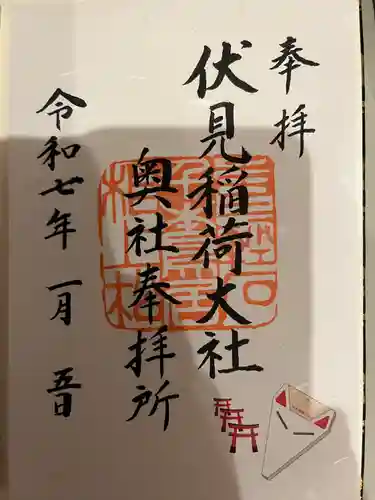 奉拝
伏見稲荷大社
奥社奉拝所
令和七年 一月 五日